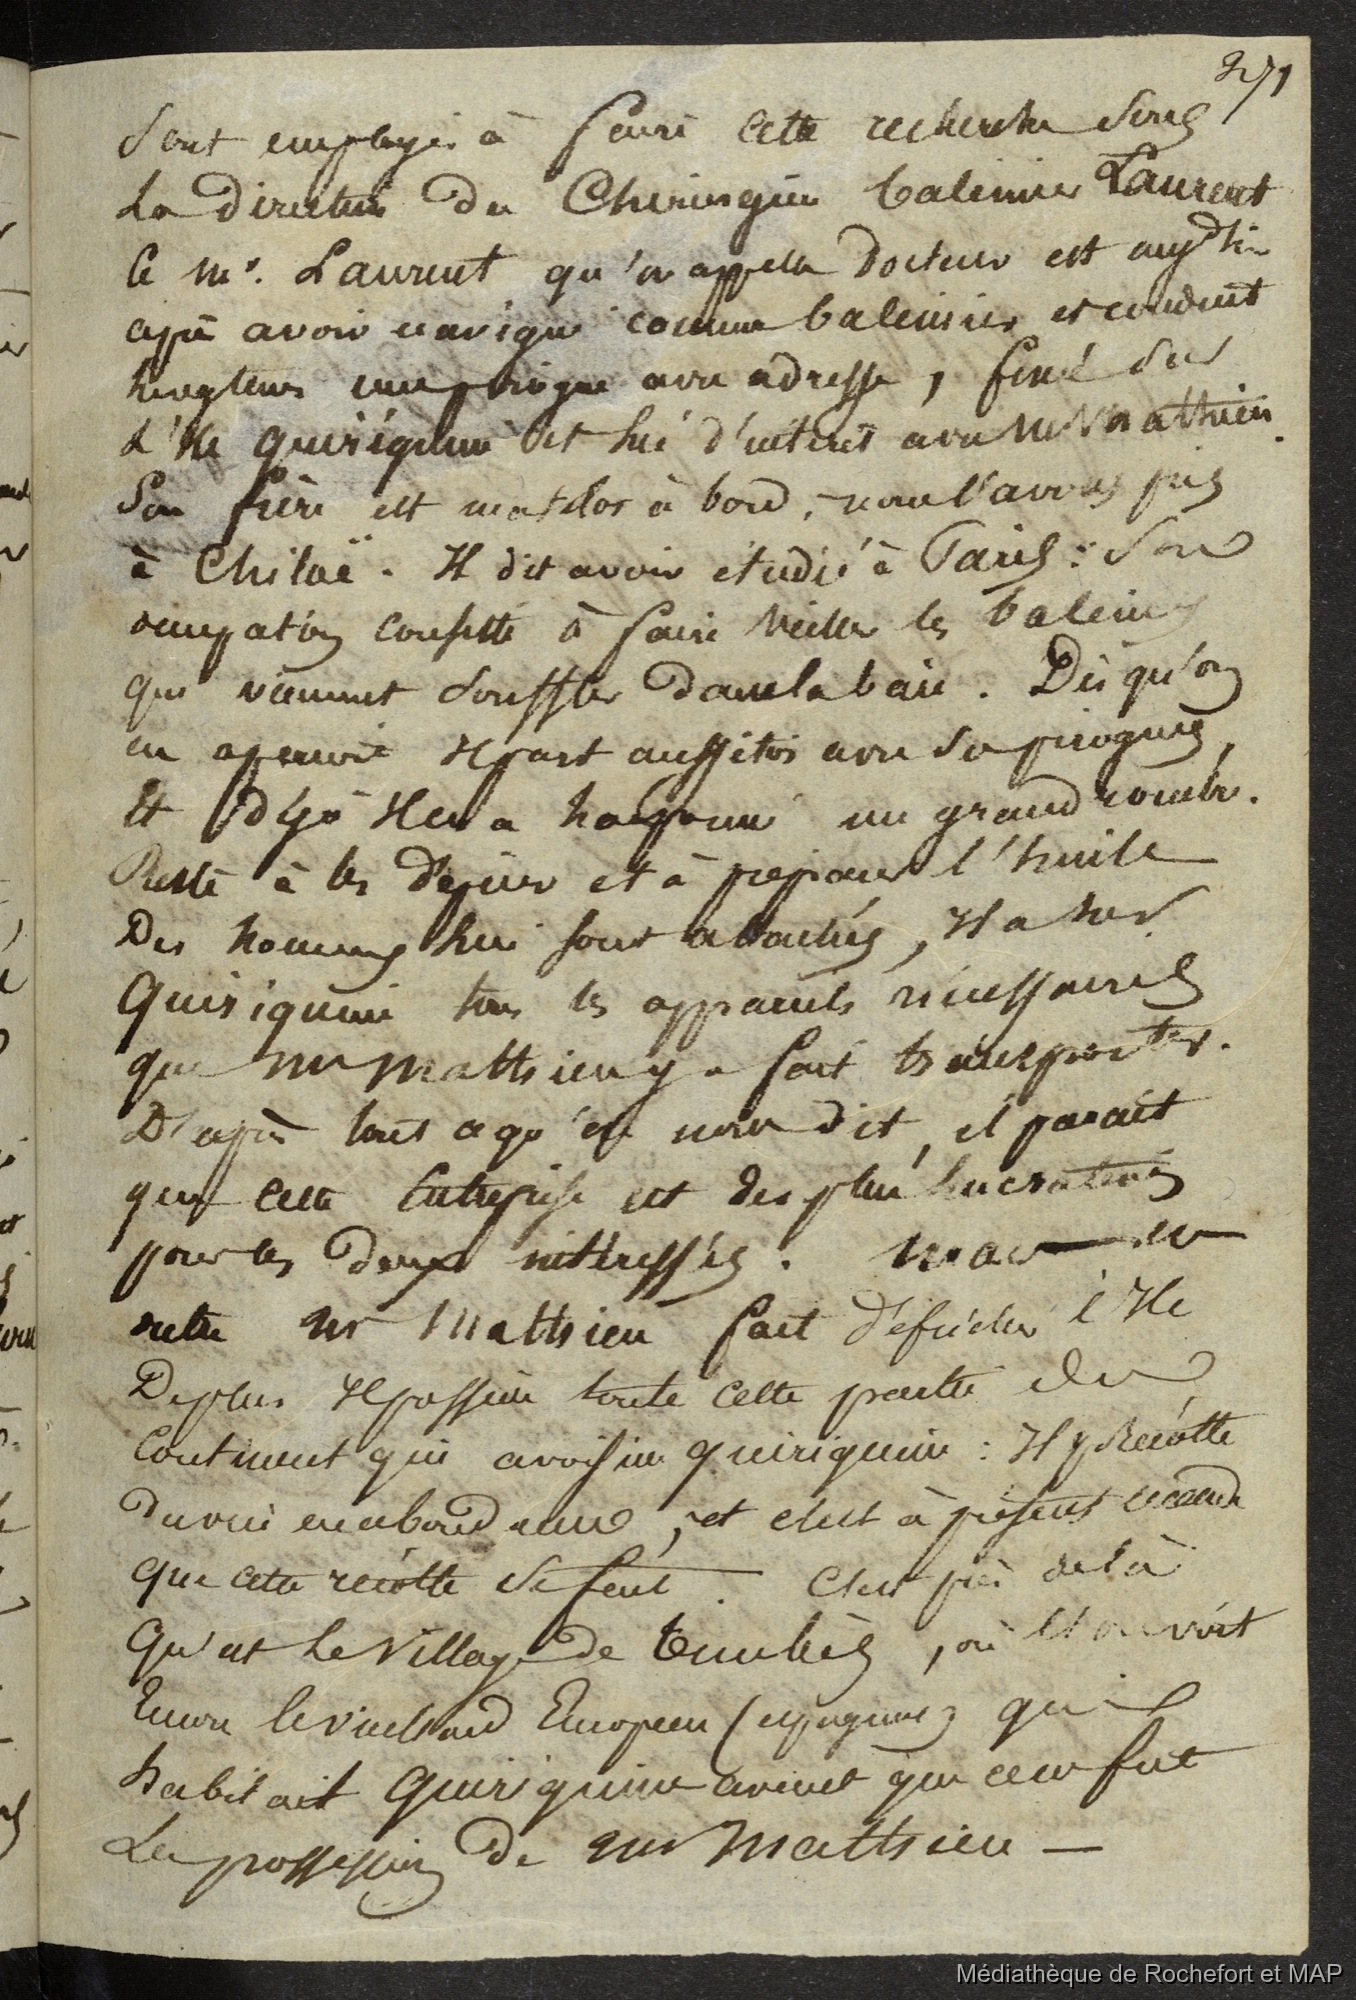 271
sont employés à faire cette recherche sous
La direction du Chirurgien baleinier Laurent
Ce mr. Laurent qu'on appelle Docteur est aujd'hui
après avoir navigué comme baleinier et conduit
longtems une pirogue avec adresse, fixé sur
L'Ile quiriquine et lié d'intérêt avec Mr Mathieu.
Son frère est matelot à bord, nous l'avons pris
à Chiloë. Il dit avoir étudié à Paris: Son
occupation consiste à faire veiller les baleines
qui viennent souffler dans la baie. Dès qu'on
en aperçoit Il part aussitôt avec ses pirogues,
Et déjà Il en a harponné un grand nombre.
Reste à les dépécer et à préparer l'huile
Des hommes lui sont attachés, Il a sur
Quiriquine tous les appareils nécessaires
que mr Matthieu y a fait transporter.
D'après tout ce qu'on nous dit, il parait
que cette Entreprise est des plus lucratives
pour les deux intéressés.
outre mr Matthieu fait défricher l'Ile
De plus Il possède toute cette partie du
Continent qui avoisine quiriquine: Il y Récolte
du vin en abondance, et c'est à présent
que cette récolte se fait. C'est près de là
Qu'est Le Village de tumbès, où l'on voit
Encore le vieillard Européen (espagnol) qui
habitait Quiriquine avant que ce ne fut
La possession de mr Matthieu —
Médiathèque de Rochefort et MAP